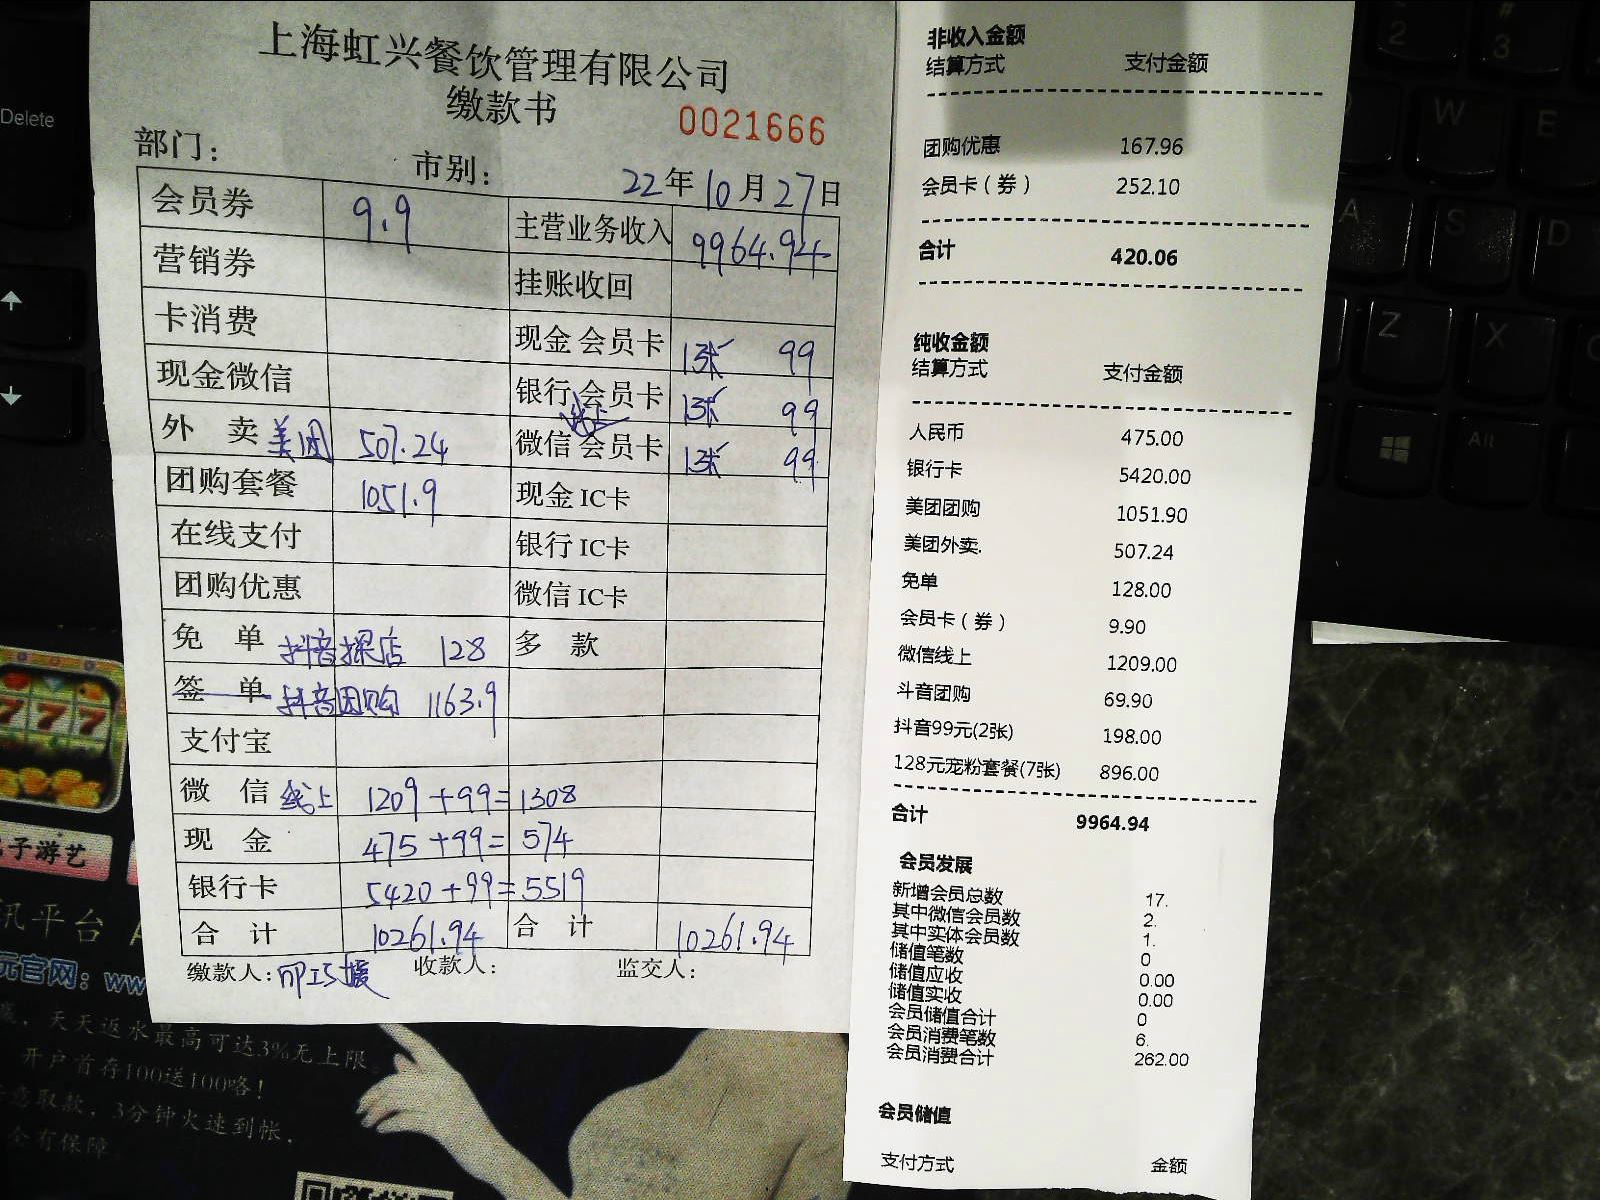 上海虹兴餐饮管理有限公司
缴款书
0021666
部门：
市别：
22年10月27日
会员券 9.9 主营业务收入 9964.94
营销券 挂账收回
卡消费 现金 会员卡 1张 99
现金微信 银行 会员卡 1张 99
外 卖 美团 507.24 微信 线上 会员卡 1张 99
团购套餐 1051.9 现金 IC卡
在线支付 银行 IC卡
团购优惠 微信 IC卡
免 单 抖音探店 128 多 款
签 单 抖音团购 1163.9
支付宝
微 信 线上 1209+99=1308
现 金 475+99=574
银行卡 5420+99=5519
合 计 10261.94 合 计 10261.94
缴款人：
收款人：
监交人：
非收入金额
结算方式 支付金额
团购优惠 167.96
会员卡（券） 252.10
合计 420.06
纯收金额
结算方式 支付金额
人民币 475.00
银行卡 5420.00
美团团购 1051.90
美团外卖. 507.24
免单 128.00
会员卡（券） 9.90
微信线上 1209.00
斗音团购 69.90
抖音99元(2张) 198.00
128元宠粉套餐(7张) 896.00
合计 9964.94
会员发展
新增会员总数 17.
其中微信会员数 2.
其中实体会员数 1.
储值笔数 0
储值应收 0.00
储值实收 0.00
会员储值合计 0
会员消费笔数 6.
会员消费合计 262.00
会员储值
支付方式 金额
Delete
2
#
3
W
E
A
S
D
Z
X
Alt
777
子游艺
讯平台
元官网：www
天天返水最高可达3%无上限。
开户首存100送100咯！
意取款，3分钟火速到帐，
全有保障